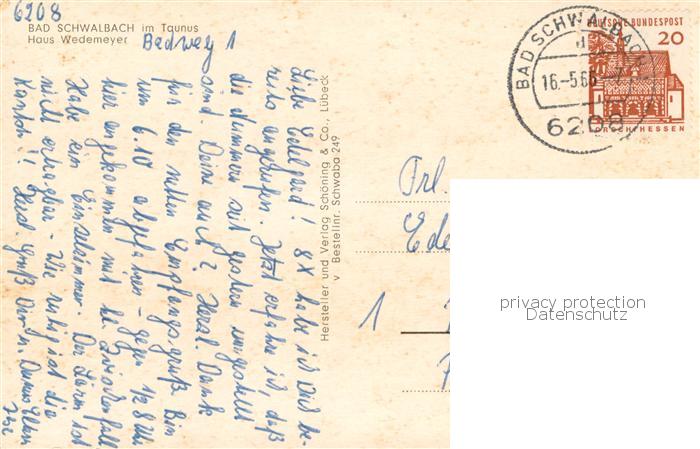 6208
BAD SCHWALBACH im Taunus
Haus Wedemeyer
Badweg 1
Liebe Edelgard! 8x habe ich Dich be-
reits angerufen. Jetzt erfahre ich, daß
die Nummern seit gestern umgestellt
sind. Deine auch? Herzl. Dank
für den netten Empfangsgruß. Bin
um 6.10 abgefahren - gegen 1/2 8 Uhr
hier angekommen mit kl. Zwischenfall
Habe ein Einzelzimmer. Der Lärm ist
nicht erhagbar - Wie ruhig ist die
Kantstr.!! Herzl. Gruß Dir u. Deinen Eltern
Ihre
Hersteller und Verlag Schöning & Co., Lübeck
v Bestellnr. Schwaba 249
BAD SCHWALBACH
16.-5.66.-7
6208
DEUTSCHE BUNDESPOST
20
LORSCH/HESSEN
Frl.
Ede
1
privacy protection
Datenschutz